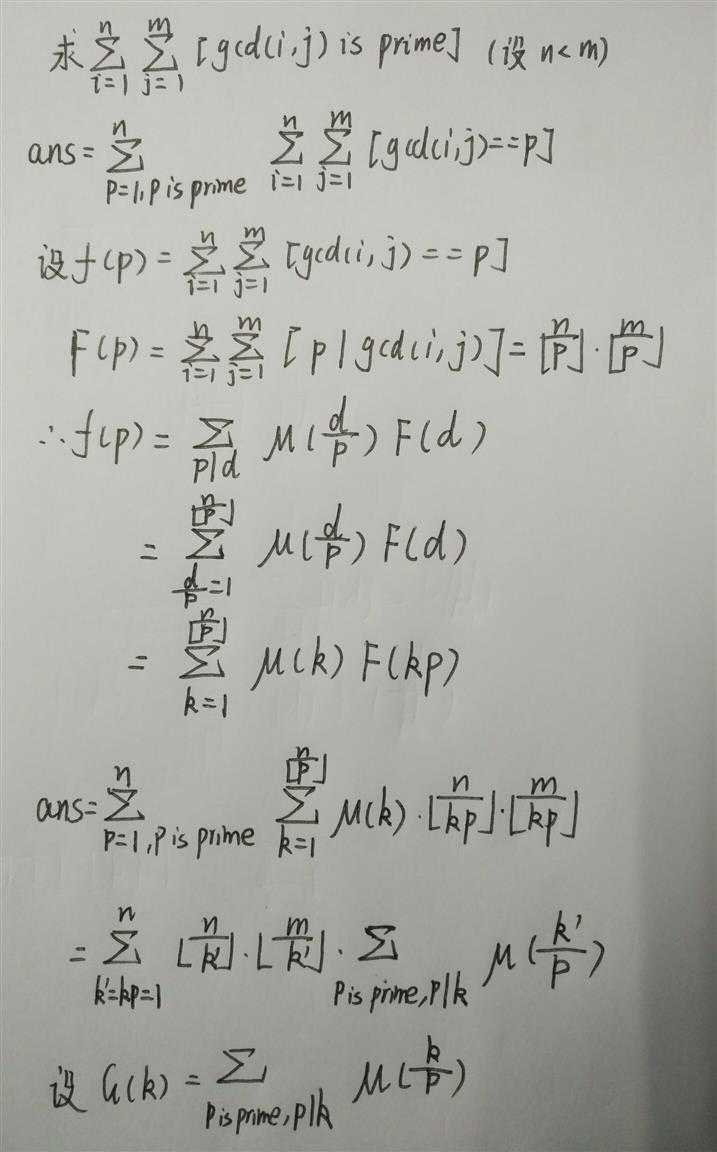 求 $\sum_{i=1}^{n} \sum_{j=1}^{m} [gcd(i,j) is prime]$ (设 n<m)
ans = $\sum_{P=1, P is prime}^{n} \sum_{i=1}^{n} \sum_{j=1}^{m} [gcd(i,j)==p]$
设 $f(p) = \sum_{i=1}^{n} \sum_{j=1}^{m} [gcd(i,j)==p]$
$F(p) = \sum_{i=1}^{n} \sum_{j=1}^{m} [p | gcd(i,j)] = \lfloor\frac{n}{p}\rfloor \cdot \lfloor\frac{m}{p}\rfloor$
$\therefore f(p) = \sum_{p|d} \mu(\frac{d}{p}) F(d)$
$= \sum_{\frac{d}{p}=1}^{\lfloor\frac{n}{p}\rfloor} \mu(\frac{d}{p}) F(d)$
$= \sum_{k=1}^{\lfloor\frac{n}{p}\rfloor} \mu(k) F(kp)$
ans = $\sum_{P=1, P is prime}^{n} \sum_{k=1}^{\lfloor\frac{n}{p}\rfloor} \mu(k) \cdot \lfloor\frac{n}{kp}\rfloor \cdot \lfloor\frac{m}{kp}\rfloor$
$= \sum_{k'=kp=1}^{n} \lfloor\frac{n}{k'}\rfloor \cdot \lfloor\frac{m}{k'}\rfloor \cdot \sum_{P is prime, P|k} \mu(\frac{k'}{p})$
设 $G(k) = \sum_{P is prime, P|k} \mu(\frac{k}{p})$